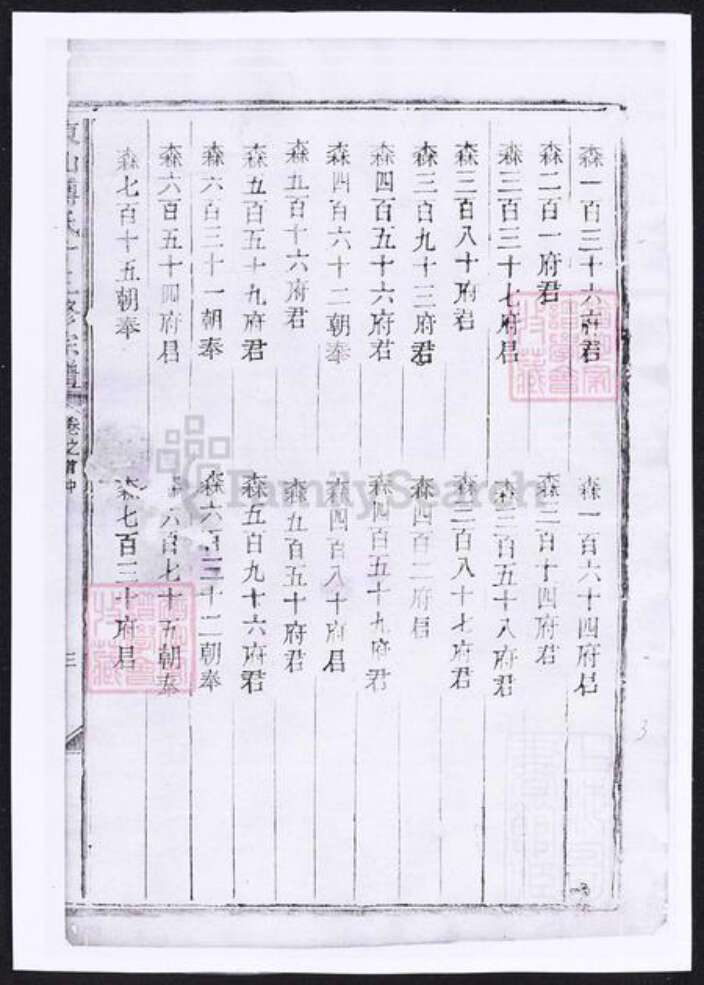 森一百三十六府君
森一百六十四府君
森二百一府君
森二百十四府君
森三百三十七府君
森三百五十八府君
森三百八十府君
森三百八十七府君
森三百九十三府君
森四百二府君
森四百五十六府君
森四百五十九府君
森四百六十二朝奉
森四百八十府君
森五百十六府君
森五百五十府君
森五百五十九府君
森五百九十六府君
森六百三十一朝奉
森六百三十二朝奉
森六百五十四府君
森六百七十五朝奉
森七百十五朝奉
森七百三十府君
東山傅氏十三修宗譜
卷之首中
三
FamilySearch
3